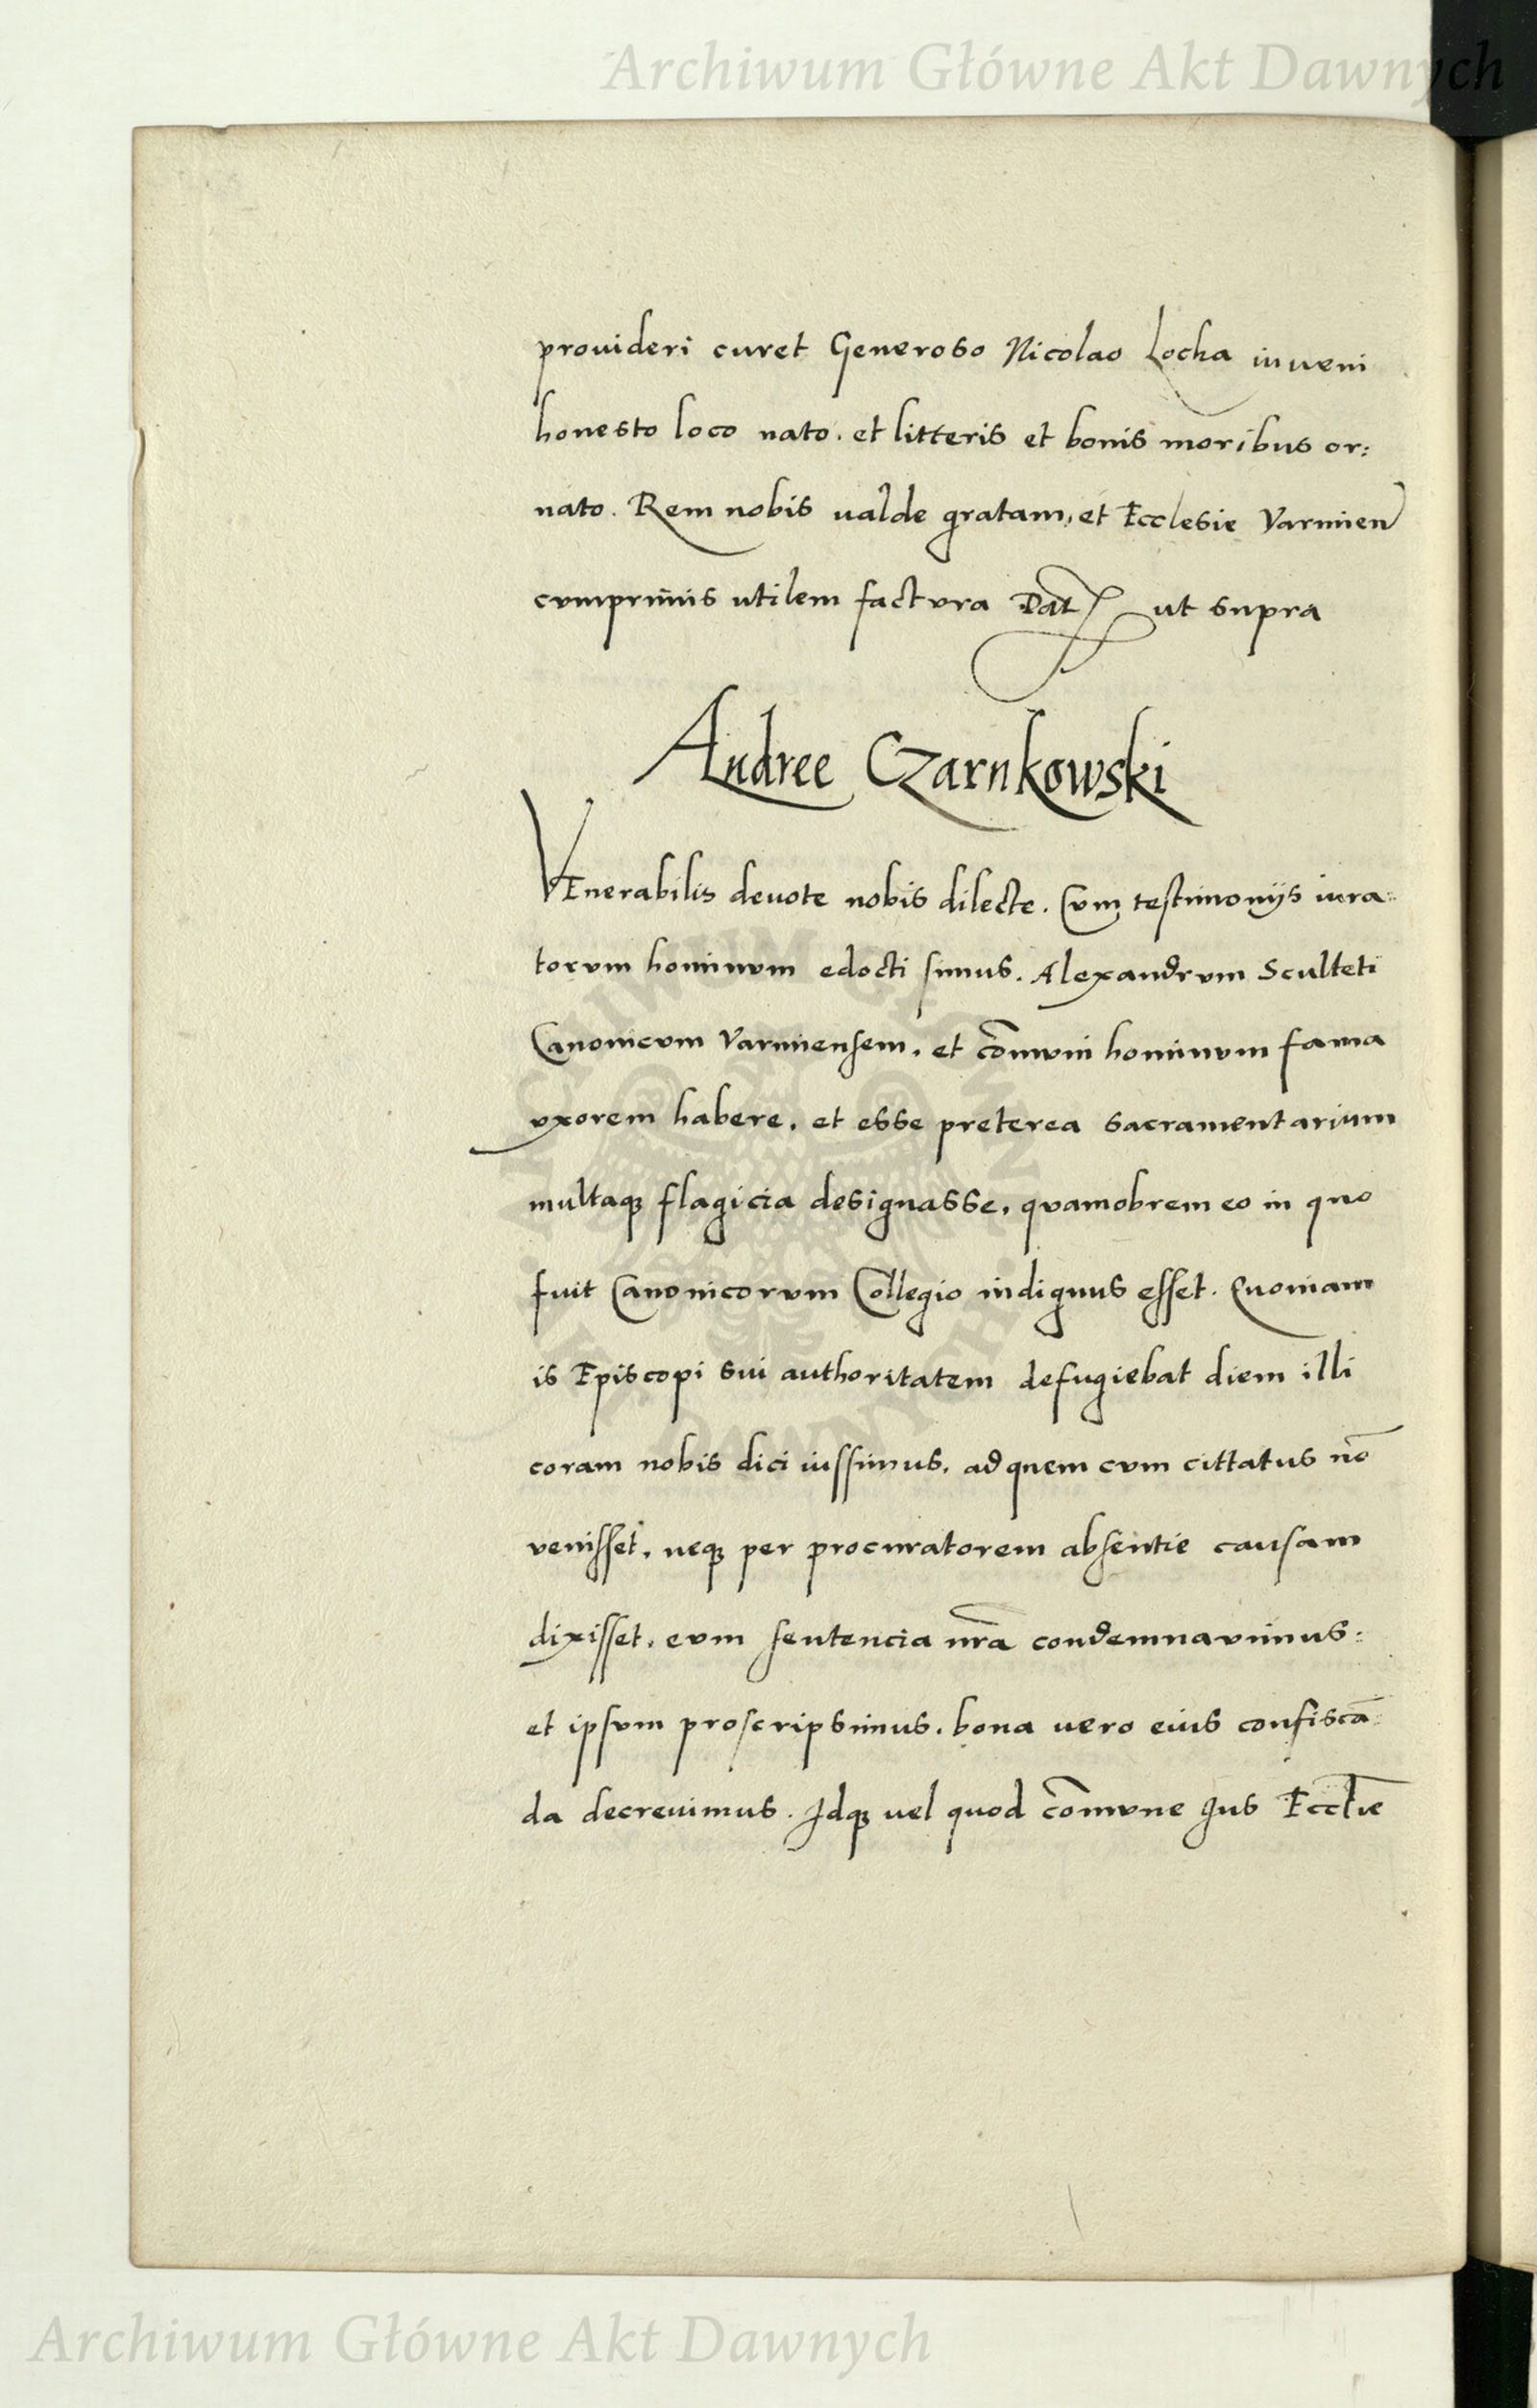 Archiwum Główne Akt Dawnych
prouideri curet Generoso Nicolao Locka iuueni
honesto loco nato. et litteris et bonis moribus or:
nato. Rem nobis ualde gratam, et Ecclesie Varmien
cumprimis utilem factura Dat ut supra
Andree Czarnkowski
VEnerabilis deuote nobis dilecte. Cum testimonijs iura:
torum hominum edocti simus. Alexandrum Sculteti
Canonicum Varmiensem, et cōmuni hominum fama
vxorem habere, et esse preterea sacramentarium
multaqꝫ flagicia designasse, quamobrem eo in quo
fuit Canonicorum Collegio indignus esset. Quoniam
is Episcopi sui authoritatem defugiebat diem illi
coram nobis dici iussimus, ad quem cum cittatus nō
venisset, neqꝫ per procuratorem absentie causam
dixisset, eum sentencia nr̄a condemnauimus:
et ipsum proscripsimus. bona uero eius confiscā:
da decreuimus. Idqꝫ uel quod cōmune Ius Eccl̄ie
Archiwum Główne Akt Dawnych